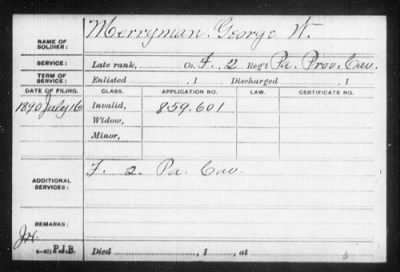 NAME OF SOLDIER: Merryman, George W.
SERVICE: Late rank, Co. F, 2 Reg't Pa. Prov. Cav.
TERM OF SERVICE: Enlisted , 1 Discharged , 1
DATE OF FILING. CLASS. APPLICATION NO. LAW. CERTIFICATE NO.
1890 July 16 Invalid, 859.601
Widow,
Minor,
ADDITIONAL SERVICES: F. 2. Pa. Cav.
REMARKS:
P.I.B. Died , 1 , at